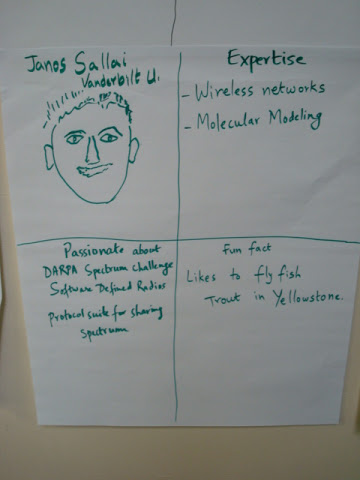 Janos Sallai
Vanderbilt U.
Expertise
- Wireless networks
- Molecular Modeling
Passionate about
DARPA Spectrum Challenge
Software Defined Radios
Protocol suite for sharing
Spectrum
Fun fact
Likes to fly fish
Trout in Yellowstone.